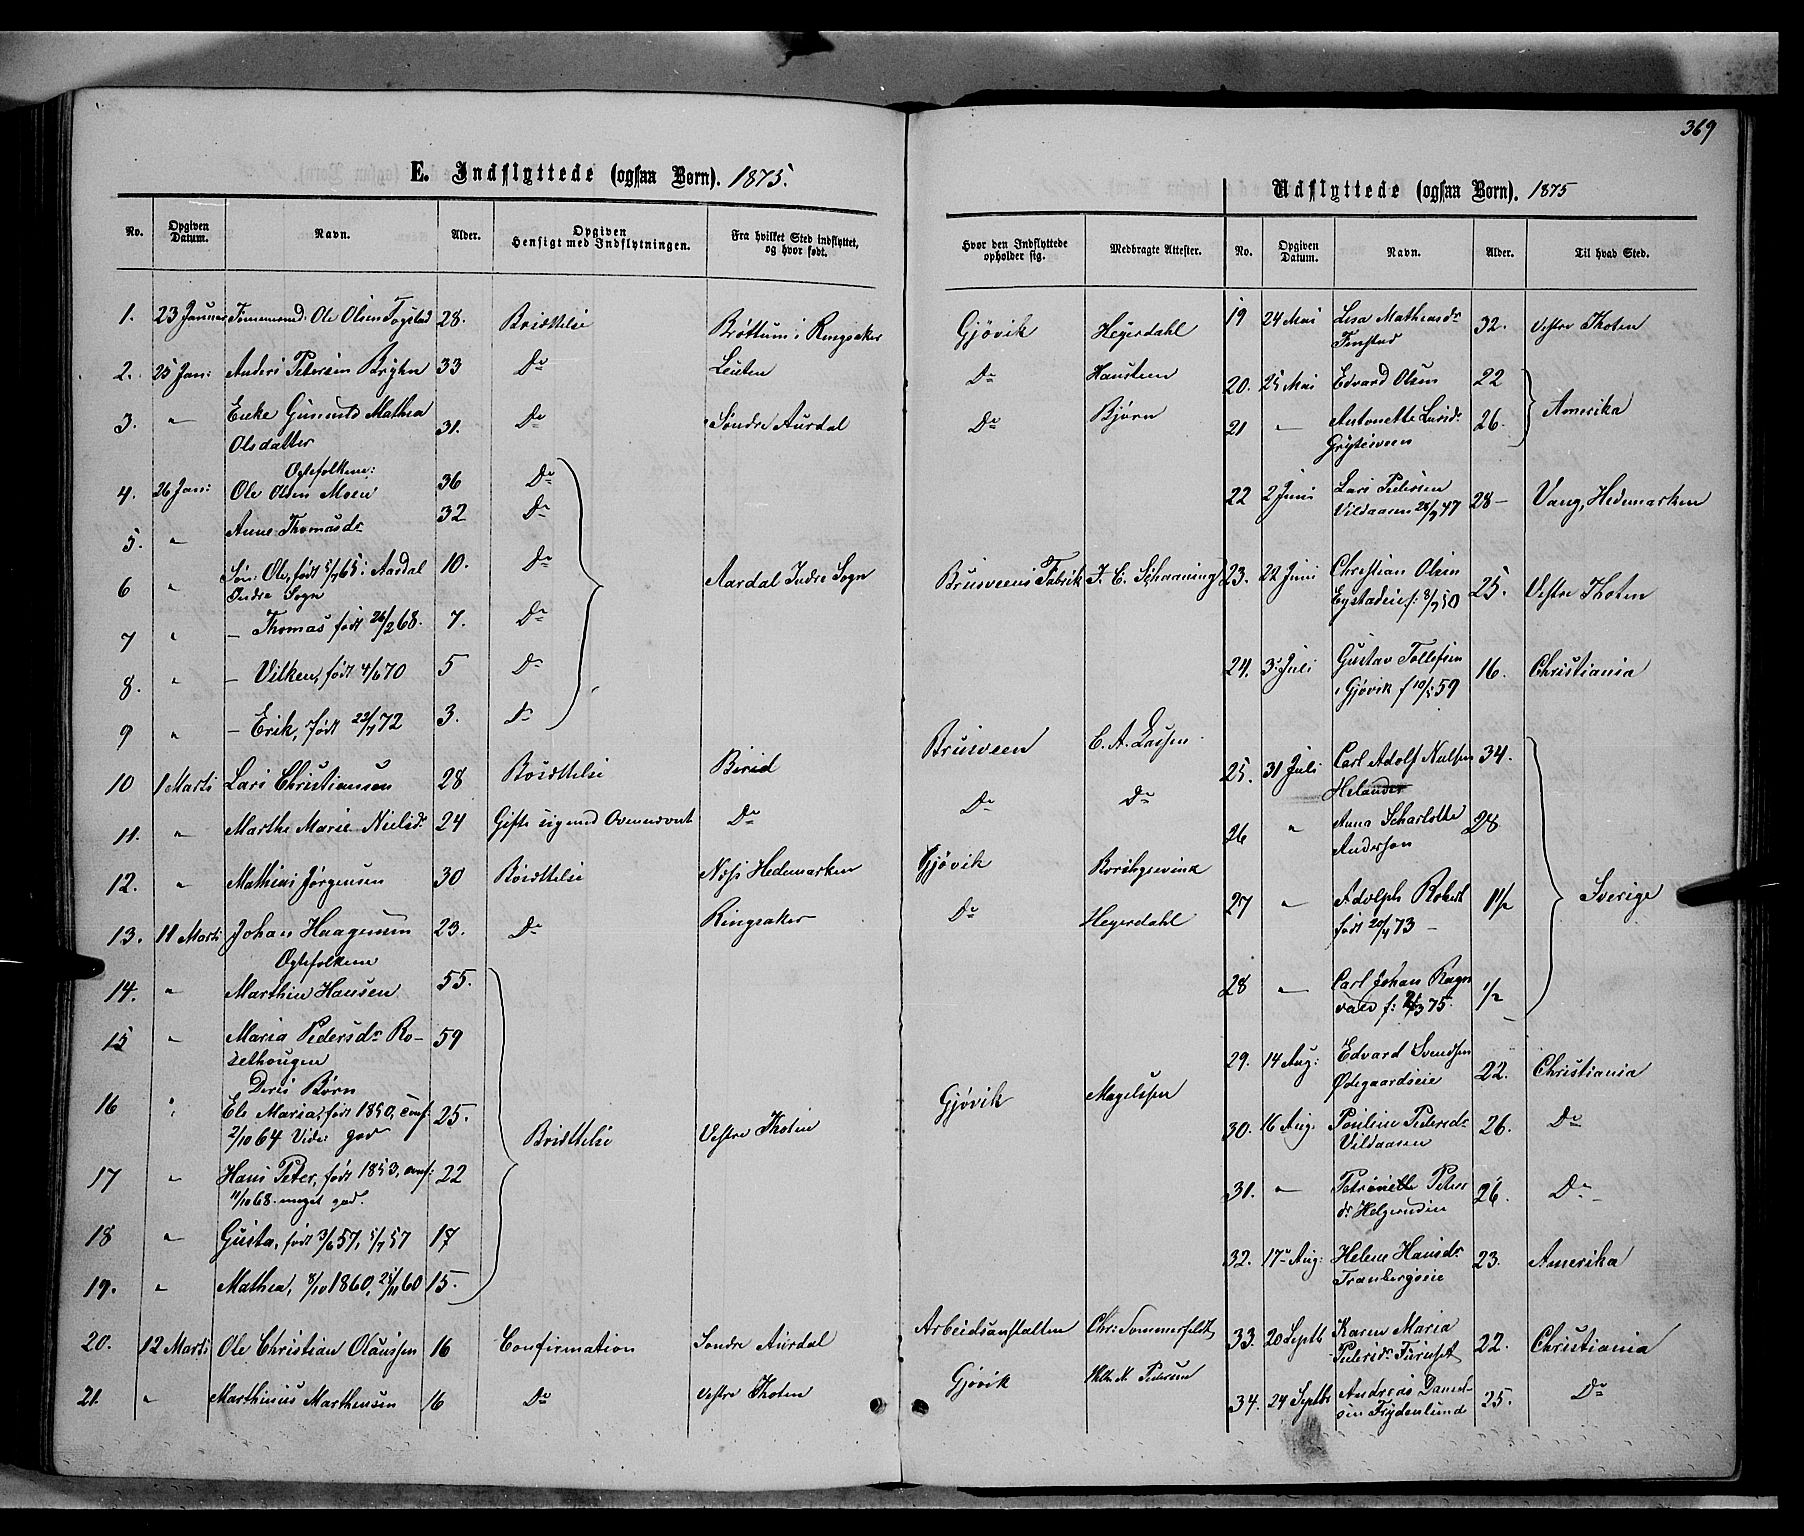 369
E. Indflyttede (ogsaa Børn). 1875.
No. Opgiven Datum. Navn. Alder. Opgiven Hensigt med Indflytningen. Fra hvilket Sted indflyttet, og hvor født. Hvor den Indflyttede opholder sig. Medbragte Attester.
1. 23 Januar Ole Olsen Fogstad 28. Bosættelse Brøttum i Ringsaker Gjøvik Heyerdahl
2. 25 Jan: Anders Petersen Bryhn 33 Do Leuten Do Hansteen
3. " Enke Gunild Mathea
Olsdatter 31. Do Søndre Aurdal Do Bjørn
Ægtefolkene:
4. 26 Jan: Ole Olsen Moen 36 Do
5. " Anne Thomasdr 32 Do
6 " Søn: Ole, født 5/7 65 i Aardal 10. Do Aardal Indre Sogn Brusveens Fabrik J. C. Schaaning
Indre Sogn
7 " – Thomas født 26/2 68. 7. Do
8. " – Vilken, født 4/6 70 5 Do
9 " – Erik, født 22/7 72 3. Do
10 1 Marts Lars Christiansen 28 Bosættelse Birid Brusveen C. A. Lassen
11. " Marthe Marie Nielsdr 24 Gifte sig med Ovennævnt Do Do Do
12. " Mathias Jørgensen 30 Bosættelse Næss Hedemarken Gjøvik
13. 11 Marts Johan Haagensen 23. Do Ringsaker Do Heyerdahl
Ægtefolkene
14. " Marthin Hansen 55.
15 " Maria Pedersdr Ro-
sethougen 59
Deres Børn
16 " Ele Maria, født 1850, conf:
2/10 64 Vider god 25. Bosættelse Vestre Thoten Gjøvik Magelssen
17 " Hans Peter, født 1853, conf:
11/10 68. meget god. 22
18 " Gusta, født 3/6 57, 5/7 57 17
19. " Mathea, 8/10 1860, 25/11 60 15.
20. 12 Marts Ole Christian Olaussen 16 Confirmation Søndre Aurdal Arbeidsanstalten Chr: Sommerfeldt
21. " Marthinius Marthinsen 16 Do Vestre Thoten Gjøvik N. Pedersen
Udflyttede (ogsaa Børn). 1875
No. Opgiven Datum. Navn. Alder. Til hvad Sted.
19 24 Mai Lisa Mathiasdr
Finstad 32. Vestre Thoten
20. 25 Mai Edvard Olsen 22 Amerika
21 " Antonette Larsdr
Grytesveen 26.
22 2 Juni Lars Petersen
Vildaasen 28/9 47 28 – Vang, Hedemarken
23. 22 Juni Christian Olsen
Eystadeie f: 8/7 50 25. Vestre Thoten
24. 3 Juli Gustav Tollefsen
i Gjøvik f 10/5 59 16. Christiania
25. 31 Juli Carl Adolf Nielsen 34.
Helander
26 " Anna Scharlotte 28
Anderson
27 " Adolph Robert 1½ Sverige
født 20/4 73 –
28 " Carl Johan Ragn
vald f: 2/3 75. ½
29. 14 Aug: Edvard Svendsen
Ødegaardseie 22. Christiania
30. 16 Aug. Pouline Petersdr
Vildaasen 26. Do
31. " Petronelle Peters
dr Helgerudeie 26. Do –
32. 17 Aug: Helene Hansdr
Tranbergseie 23. Amerika
33. 20 Septb Karen Maria
Petersdr Furuset 22. Christiania
34. 24 Septbr Andreas Daniel-
sen Frydenlund 25. Do